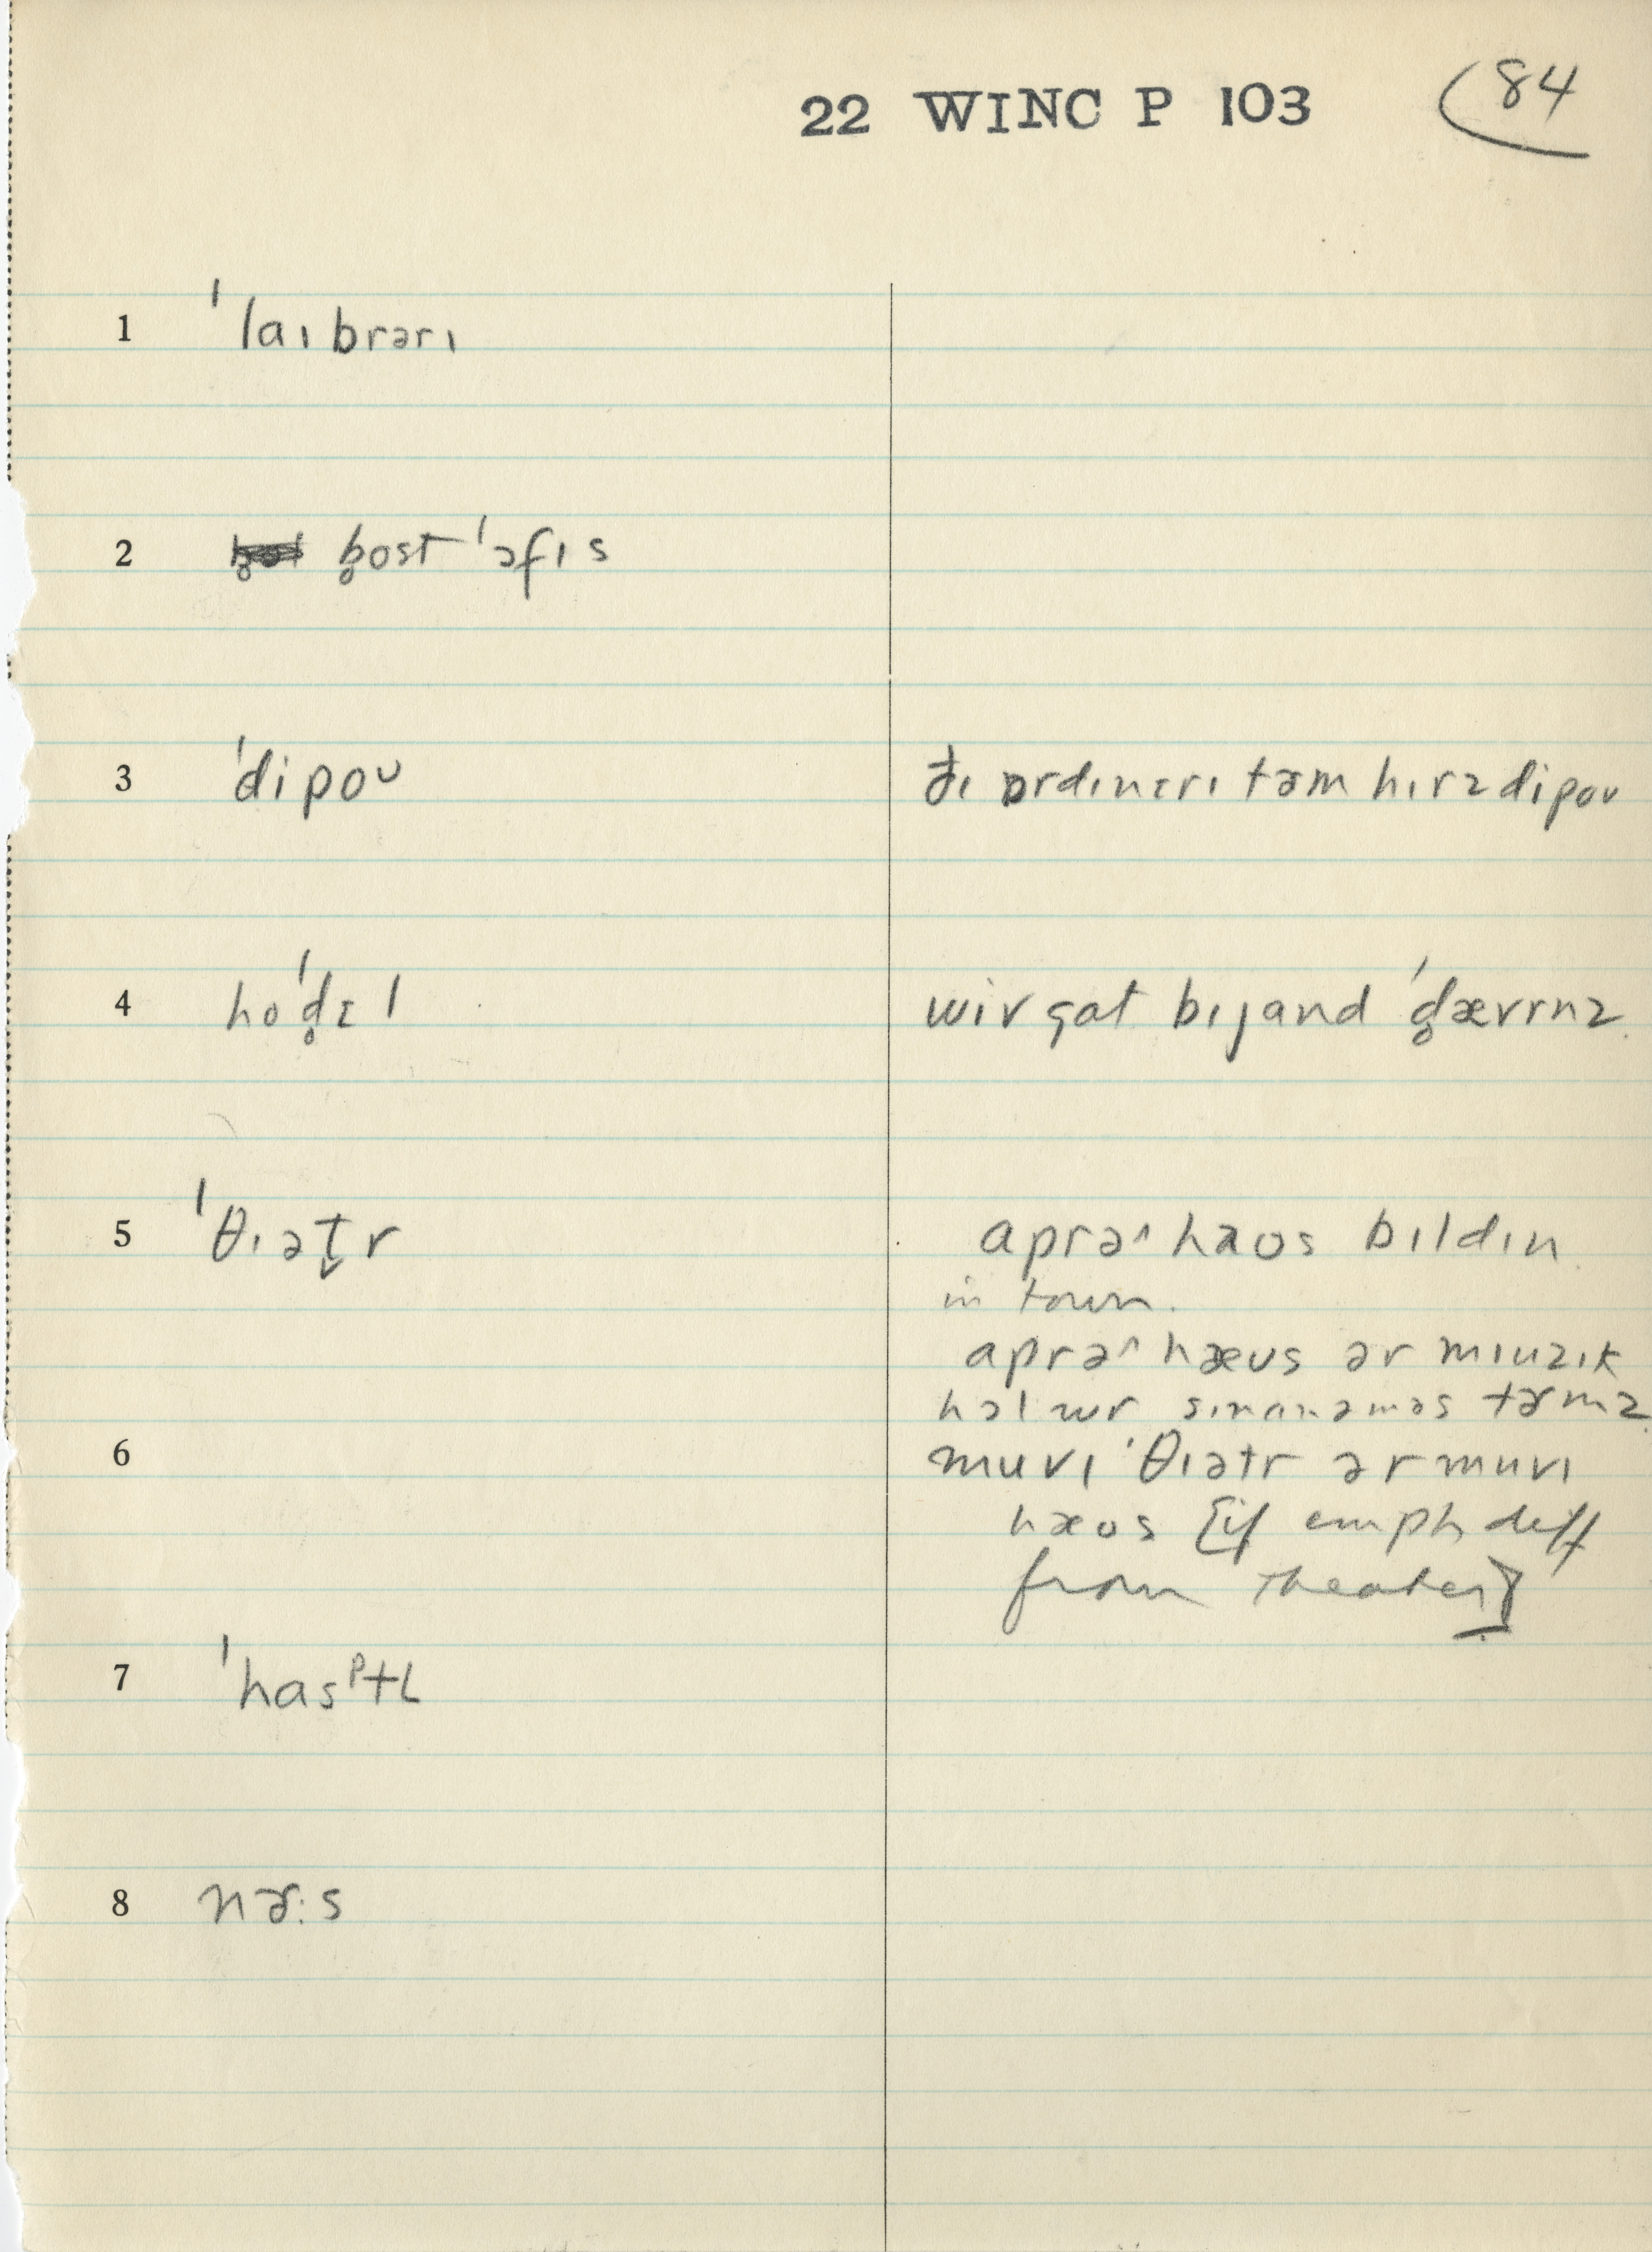 22 WINC P 103 84
1 ˈlaɪbrərɪ
2 b̥ostˈɔfɪs
3 ˈdipoʊ ðɪ ɔrdɪnɛrɪ tɚm hɪrz dipoʊ
4 hoˈd̥ɛl wiv gat bɪjand ˈd̥ævrnz
5 ˈθɪət̬r aprəˆhaʊs bɪldɪn
in town.
aprəˆhæʊs ər mɪuzɪk
hɔl wr sɪnanəməs tɚmz
6 muvɪ ˈθɪətr ər muvɪ
hæʊs [if emph diff
from theater]
7 ˈhasᵖtl
8 nɚ:s